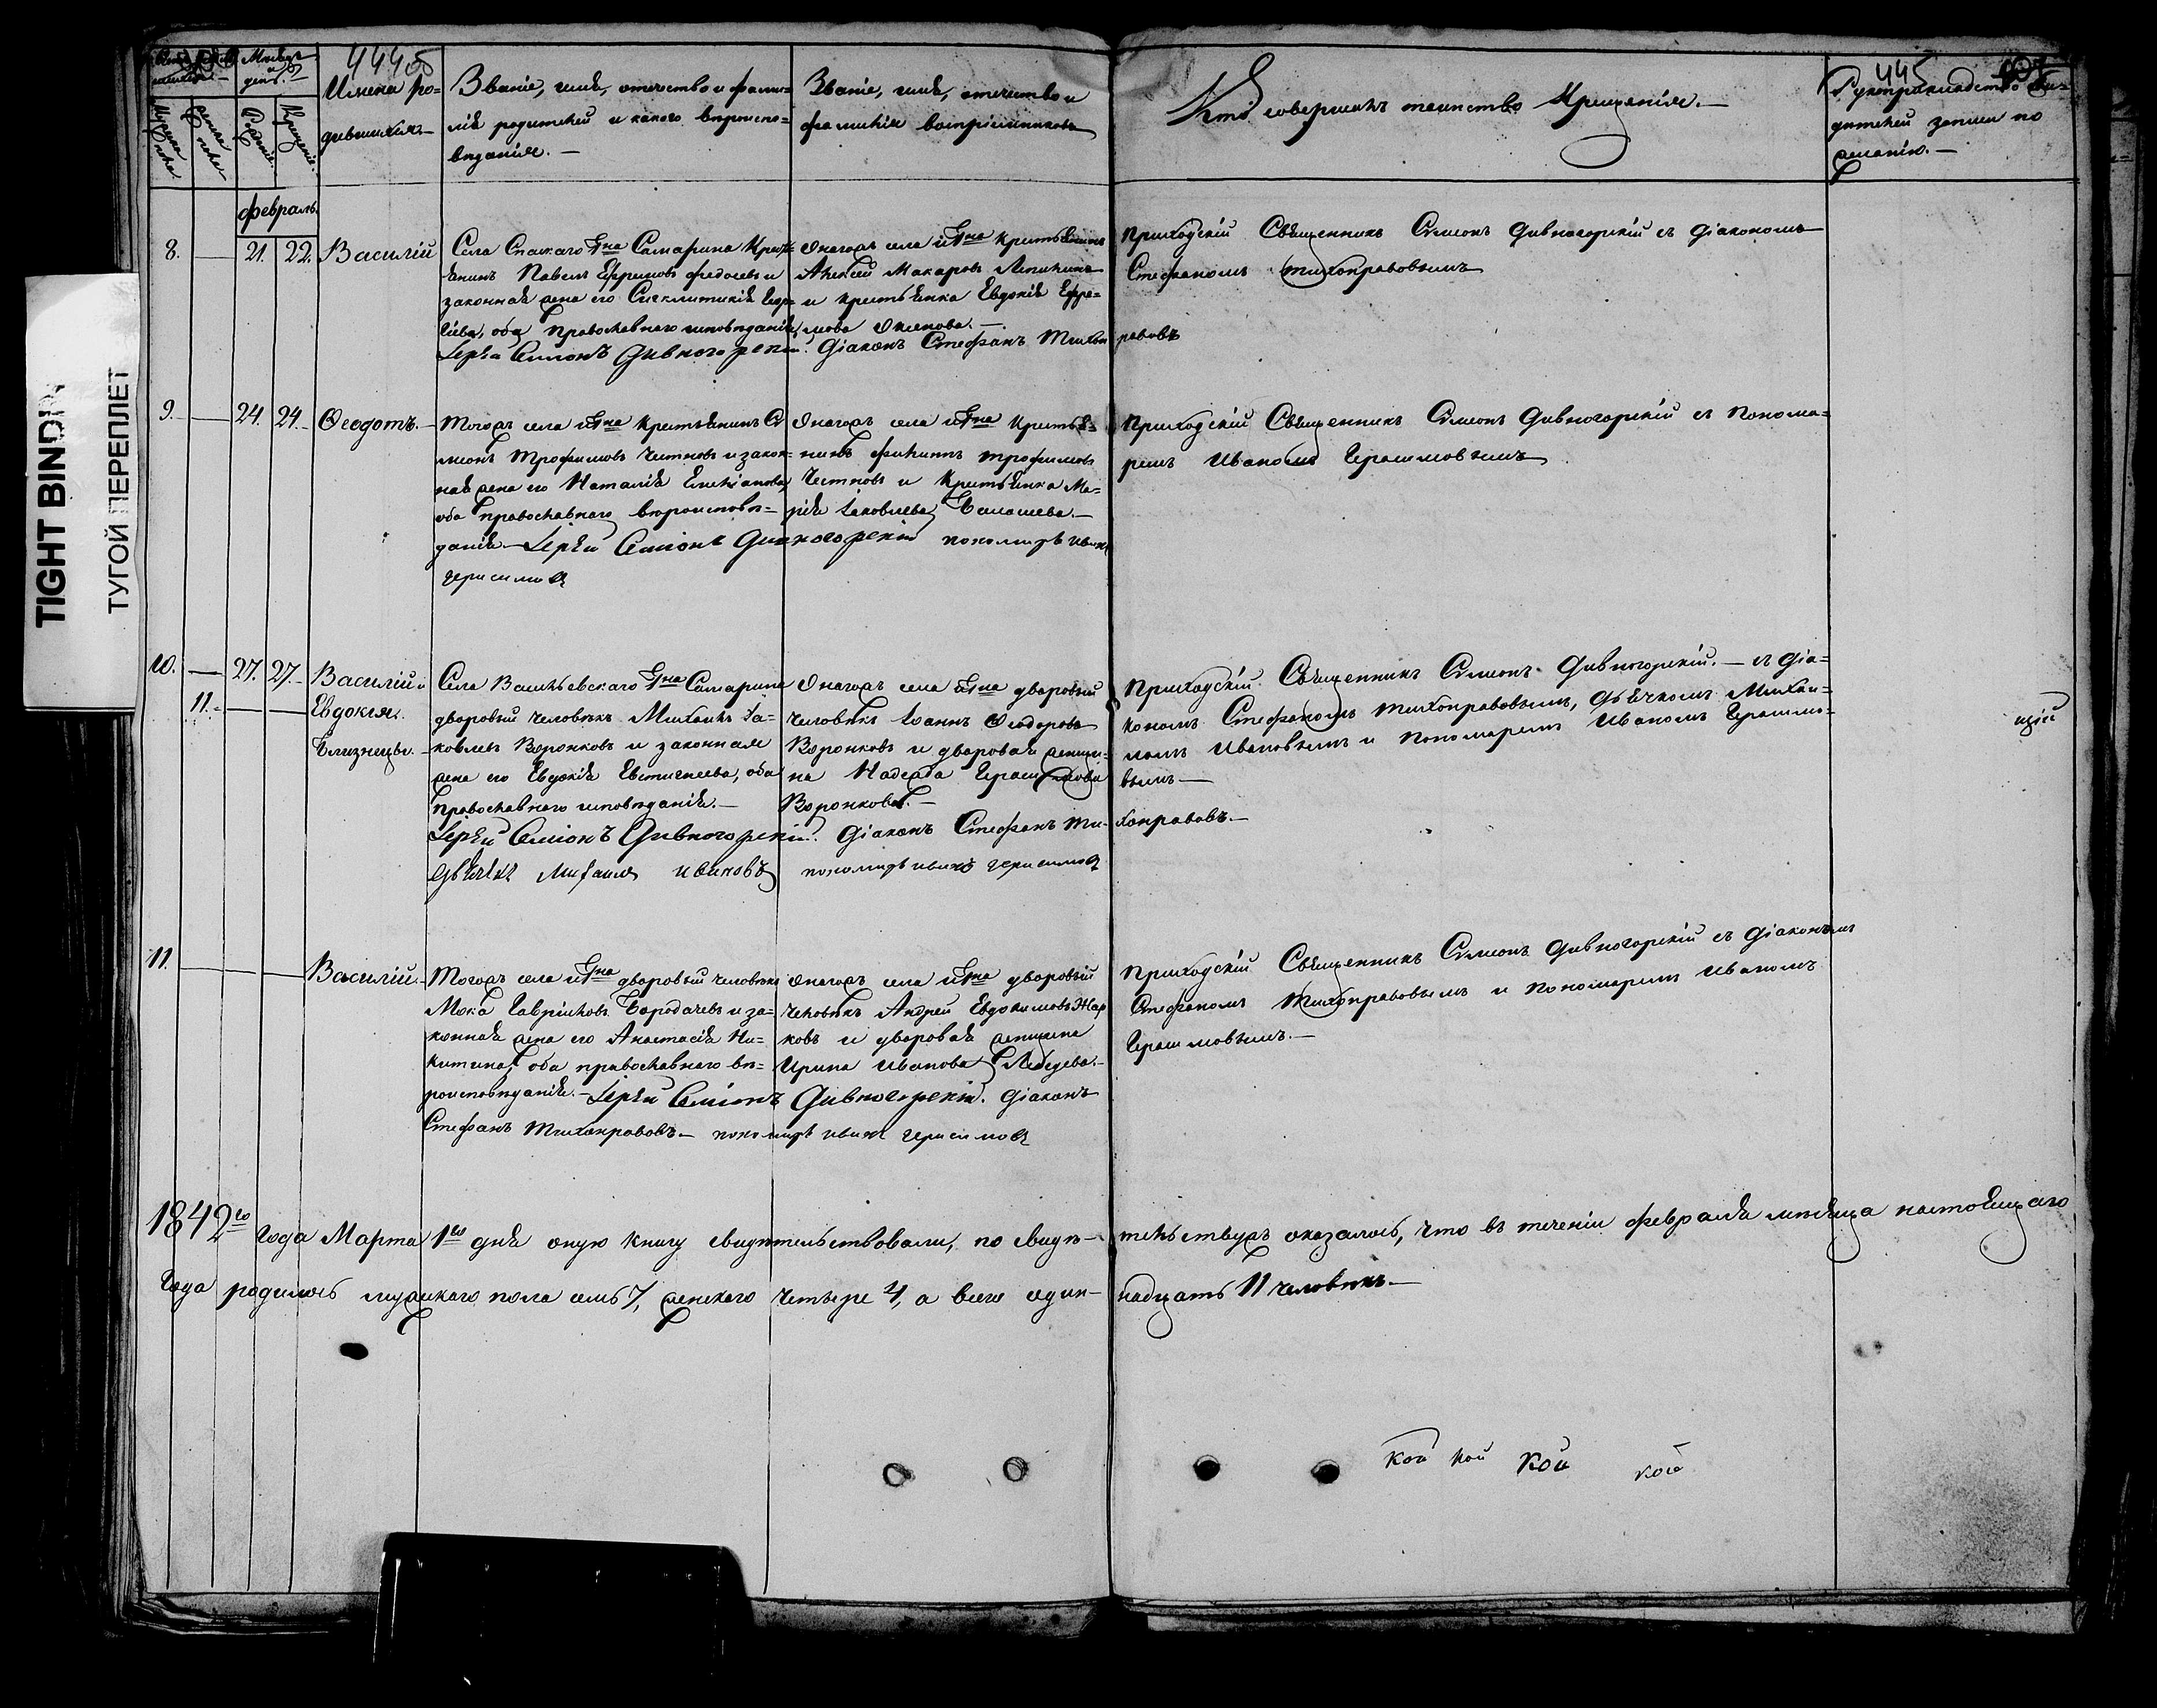 444об
445
Мѣсяцъ и день.
Имена ро-
дившихся.
Званіе, имя, отчество и фами-
лія родителей и какого вѣроиспо-
вѣданія. —
Званіе, имя, отчество и
фамилія воспріемниковъ
Кто совершалъ таинство Крещенія. —
Рукоприкладство сви-
дѣтелей записи по
желанію. —
Мужеска пола
Женска пола
Рожденіе.
Крещеніе.
февраль.
8. — 21. 22. Василій
Села Спаскаго Гна Самарина Крест-
янинъ Павелъ Ефремовъ Федосевъ и
законная жена его Сигклитикія
оба православнаго исповѣданія,
Іерей Симіонъ Дивногорскій. Діаконъ Стефанъ Тихонравовъ
Онагожъ села и Гна Крестьянинъ
Алексей Макаровъ
и крестьянка Евдокія Ефре-
мова —
Приходскій Священникъ Сѵмеонъ Дивногорскій съ Діакономъ
Стефаномъ Тихонравовымъ
9. — 24. 24. Ѳеодотъ. —
Тогожъ села и Гна Крестьянинъ Сѵ
меонъ Трофимовъ Чистовъ и закон-
ная жена его Наталія
оба православнаго вѣроисповѣ-
данія. — Іерей Симіонъ Дивногорскій пономарь иванъ
герасимовъ
Онагожъ села и Гна Крестья-
нинъ Филиппъ Трофимовъ
Чистовъ и Крестьянка Ма-
рія Іаковлева Балашева. —
Приходскій Священникъ Сѵмеонъ Дивногорскій съ Понома-
ремъ Иваномъ Герасимовымъ
10. — 27. 27. Василій и
11. — — Евдокія.
Близнецы. —
Села Васильевскаго Гна Самарина
дворовый человѣкъ Михаилъ Іа-
ковлевъ Воронковъ и законная
жена его Евдокія Евстигнеева, оба
православнаго исповѣданія. —
Іерей Симіонъ Дивногорскій. Діаконъ Стефанъ Ти- хонравовъ. —
дьячекъ Михаилъ ивановъ пономарь иванъ герасимовъ
Онагожъ села и Гна дворовый
человѣкъ Іоаннъ Ѳеодоровъ
Воронковъ и дворовая женщи-
на Надежда Герасимова
Воронкова. —
Приходскій Священникъ Сѵмеонъ Дивногорскій. — съ Діа-
кономъ Стефаномъ Тихонравовымъ, Дьячкомъ Михаи-
ломъ Ивановымъ и Пономаремъ Иваномъ Герасимо-
вымъ —
11. — — — Василій. —
Тогожъ села и Гна дворовый человѣкъ
Мока Гавріиловъ Бородачевъ и за-
конная жена его Анастасія Ни-
китина, оба православнаго вѣ-
роисповѣданія. — Іерей Симіонъ Дивногорскій. Діаконъ
Стефанъ Тихонравовъ — пономарь иванъ герасимовъ
Онагожъ села и Гна дворовый
человѣкъ Андрей Евдокимовъ Жар
ковъ и дворовая женщина
Ирина Иванова Лебедева. —
Приходскій Священникъ Сѵмеонъ Дивногорскій съ Діакономъ
Стефаномъ Тихонравовымъ и Пономаремъ Иваномъ
Герасимовымъ. —
1842го Года Марта 1го дня оную книгу свидѣтельствовали, по свидѣ- тельствуже оказалось, что въ теченіи февраля мѣсяца настоящаго
Года родилось мужескаго пола семь 7, женскаго четыре 4, а всего один- надцать 11 человѣкъ. —
кой кой кой кой
TIGHT BINDIN
ТУГОЙ ПЕРЕПЛЕТ